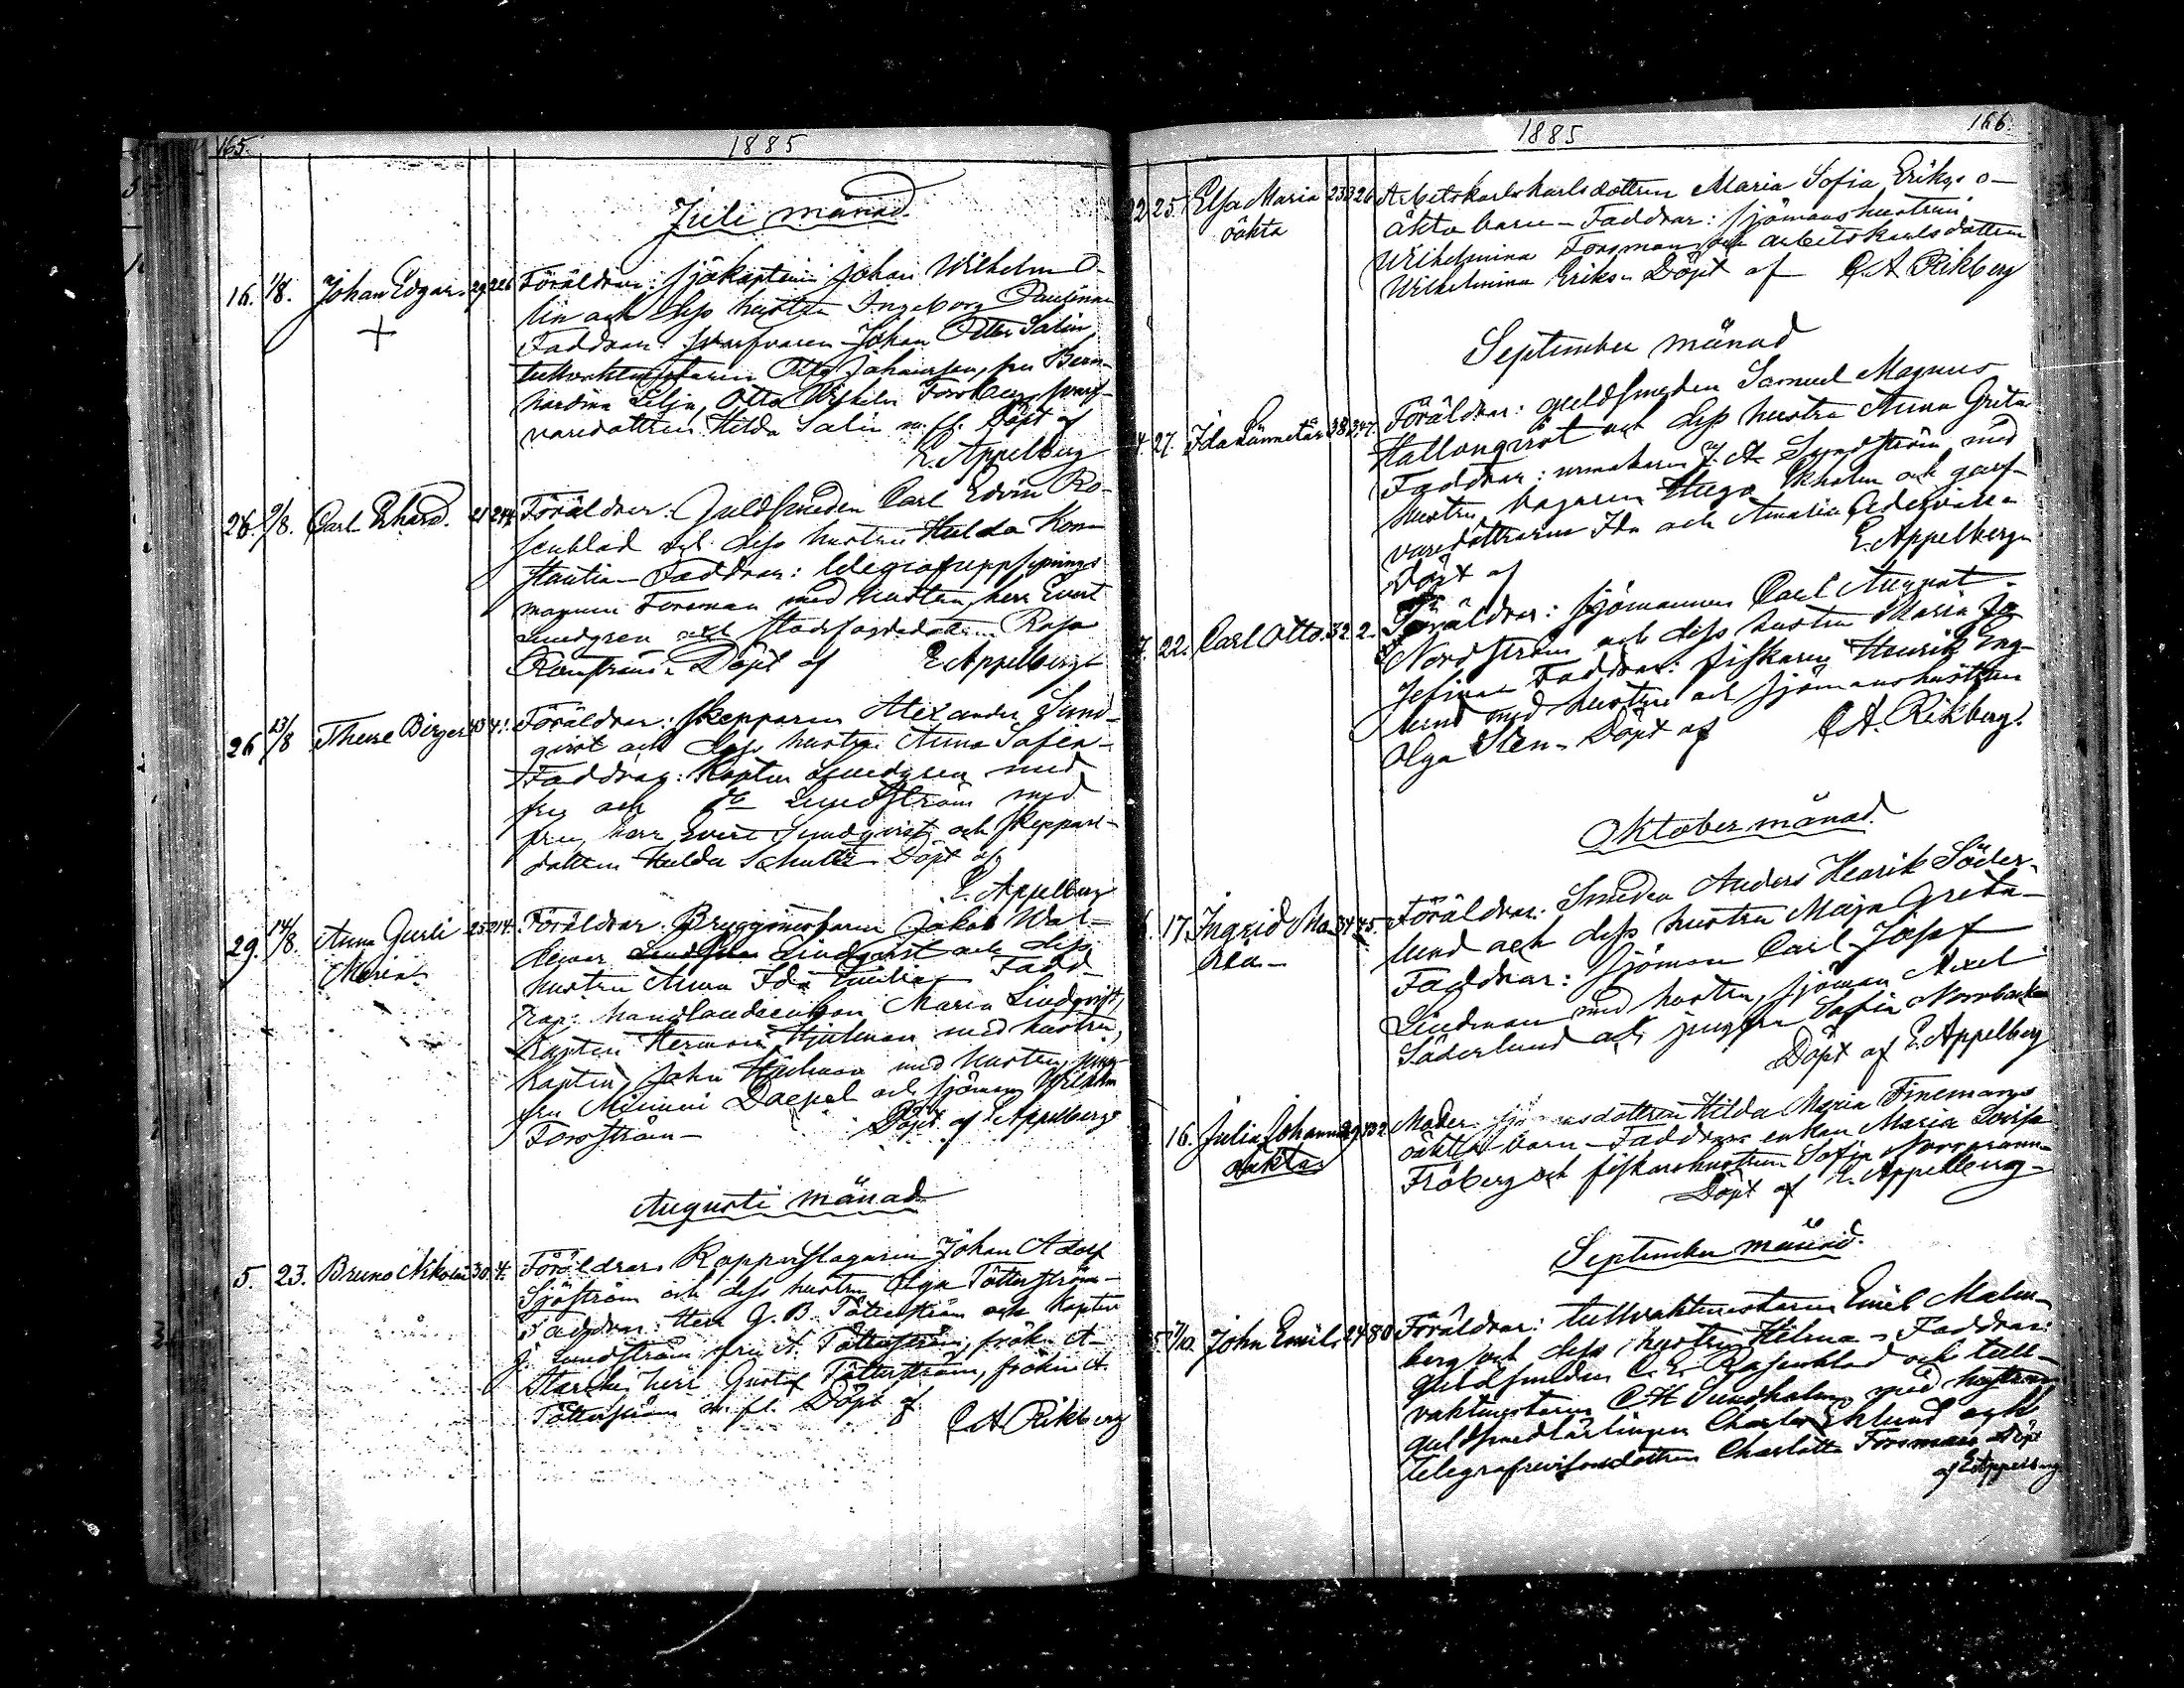 165.
1885
Juli månad.
16. 1/8. Johan Edgar. 29 226 Föräldrar: sjökaptenen Johan Wilhelm O-
+
lin och dess hustru Ingeborg Paulina
Faddrar: Johan Petter Salin,
Otto Johansson, fru Bern-
hardina Lilja, Otto Wilhelm Forsberg,
varedottren Hilda Salin m. fl. Döpt af
E. Appelberg
26. 9/8. Carl Erhard. 21 244 Föräldrar: Guldsmeden Carl Edvin Ro-
senblad och dess hustru Hulda Kon-
stantia - Faddrar: telegrafuppsynings
mannen Forsman med hustru, herr Evert
Lundgren och Rosa
Döpt af E. Appelberg
26 13/8 Birger 43 4. Föräldrar: skepparen Alexander Sund-
qvist och dess hustru Anna Sofia -
Faddrar: Kapten Lundgren med
fru och do Lundström med
fru, herr Evert Sundqvist och skeppare-
dottren Hulda Schultz Döpt af
E. Appelberg
29. 14/8. Anna Gurli 25 214. Föräldrar: Bryggmästaren Jakob Wal-
Maria
demar Lindqvist och dess
hustru Anna Ida Emilia - Fadd-
rar: handlandeenkan Maria Lindqvist,
Kapten Herman Hjulman med hustru,
Kapten John Hjulman med hustru, jung-
fru Mimmi och sjöman Wilhelm
Forsström - Döpt af E. Appelberg
Augusti månad
5. 23. Bruno Nikolai 30. 4. Föräldrar: Kopparslagaren Johan Adolf
Sjöström och dess hustru Olga Tötterström -
Faddrar: Herr G. B. Tötterström och Kapten
J. Lundström fru A. Tötterström, frökn A
herr Gustaf Tötterström, frökn A.
Tötterström m. fl. Döpt af
C A Rikberg
1885
166.
22 25. Elsa Maria 233 26 Arbetskarlsdottren Maria Sofia Eriks o-
oäkta
äkta barn - Faddrar: sjömanshustrun
Wilhelmina Forsman och arbetskarlsdottren
Wilhelmina Eriks - Döpt af C A Rikberg
September månad
27. Ida 38 247. Föräldrar: guldsmeden Samuel Magnus
Hallonqvist och dess hustru Anna Greta
Faddrar: urmakaren J. A. Sundström med
hustru, bagaren Hugo Ekholm och garf-
varedöttrarna Ida och Amalia
Döpt af E. Appelberg
22. Carl Otto. 32 2. Föräldrar: sjömannen Carl August
Nordström och dess hustru Maria Jo
sefina Faddrar: fiskaren Henrik Eng-
lund med hustru och sjömanshustrun
Olga Sten - Döpt af C A. Rikberg.
Oktober månad.
17. Ingrid 34 45. Föräldrar: Smeden Anders Henrik Söder-
lund och dess hustru Maja Greta -
Faddrar: sjöman Carl Josef
Lindman med hustru, sjöman Axel
Söderlund och jungfru Sofia Norrbacka
Döpt af E. Appelberg
16. Julia Johanna 29 132. Moder: Hilda Maria Finemans
oäkta
oäkta barn - Faddrar: enkan Maria Lovisa
Fröberg och fiskarehustrun Sofia
Döpt af E. Appelberg -
September månad.
7/10. John Emil. 24 80 Föräldrar: tullvaktmästaren Emil Malm-
berg och dess hustru Hilma - Faddrar:
guldsmeden C. E. Rosenblad och tull-
vaktmästaren C H Sundholm med hustru
guldsmedlärlingen Charles Eklund och
Charlotta Forsman Döpt
af E Appelberg